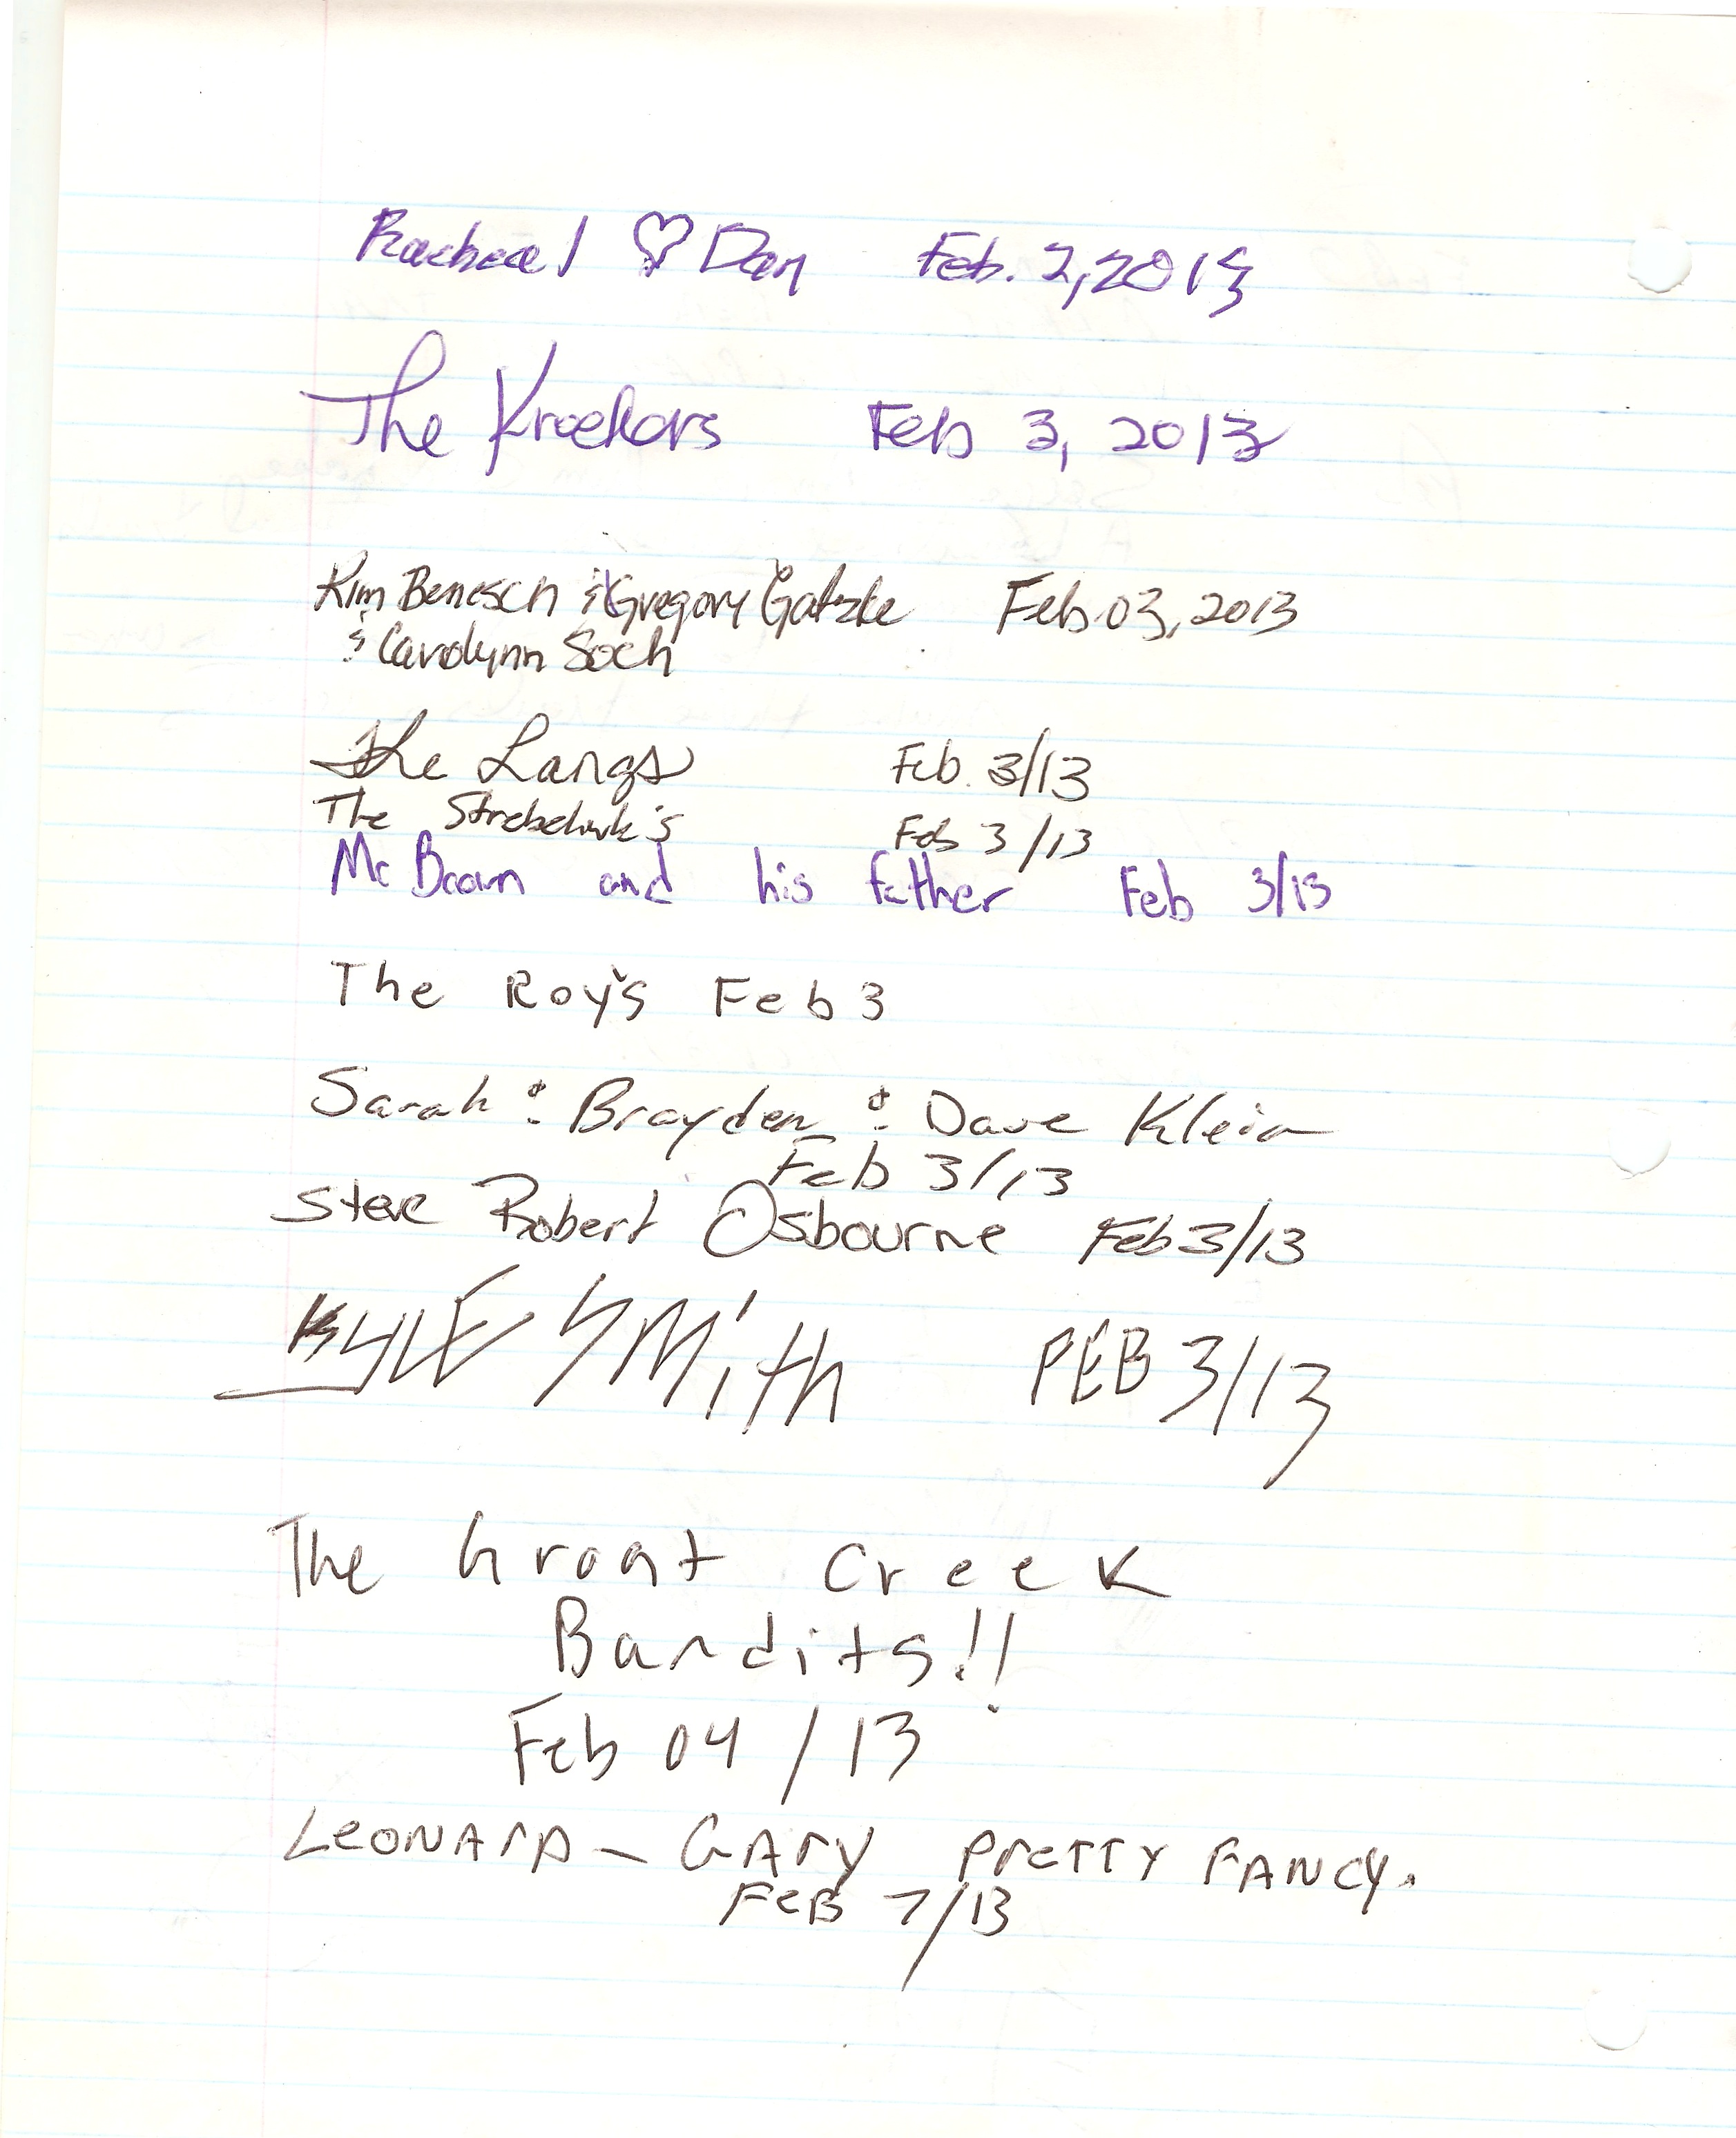 Rachael ♡ Dan Feb. 2, 2013
The Kroekers Feb 3, 2013
Kim Benesch & Gregory Gatzke Feb 03, 2013
& Carolynn Soch
The Langs Feb. 3/13
The Feb 3/13
Mc Brown and his father Feb 3/13
The Roy's Feb 3
Sarah & Brayden & Dave Klein
Feb 3/13
Steve Robert Osbourne Feb 3/13
KYLE SMith FEB 3/13
The Groat Creek
Bandits!!
Feb 04/13
LeONArD – GAry PreTTY FANCY.
FeB 7/13